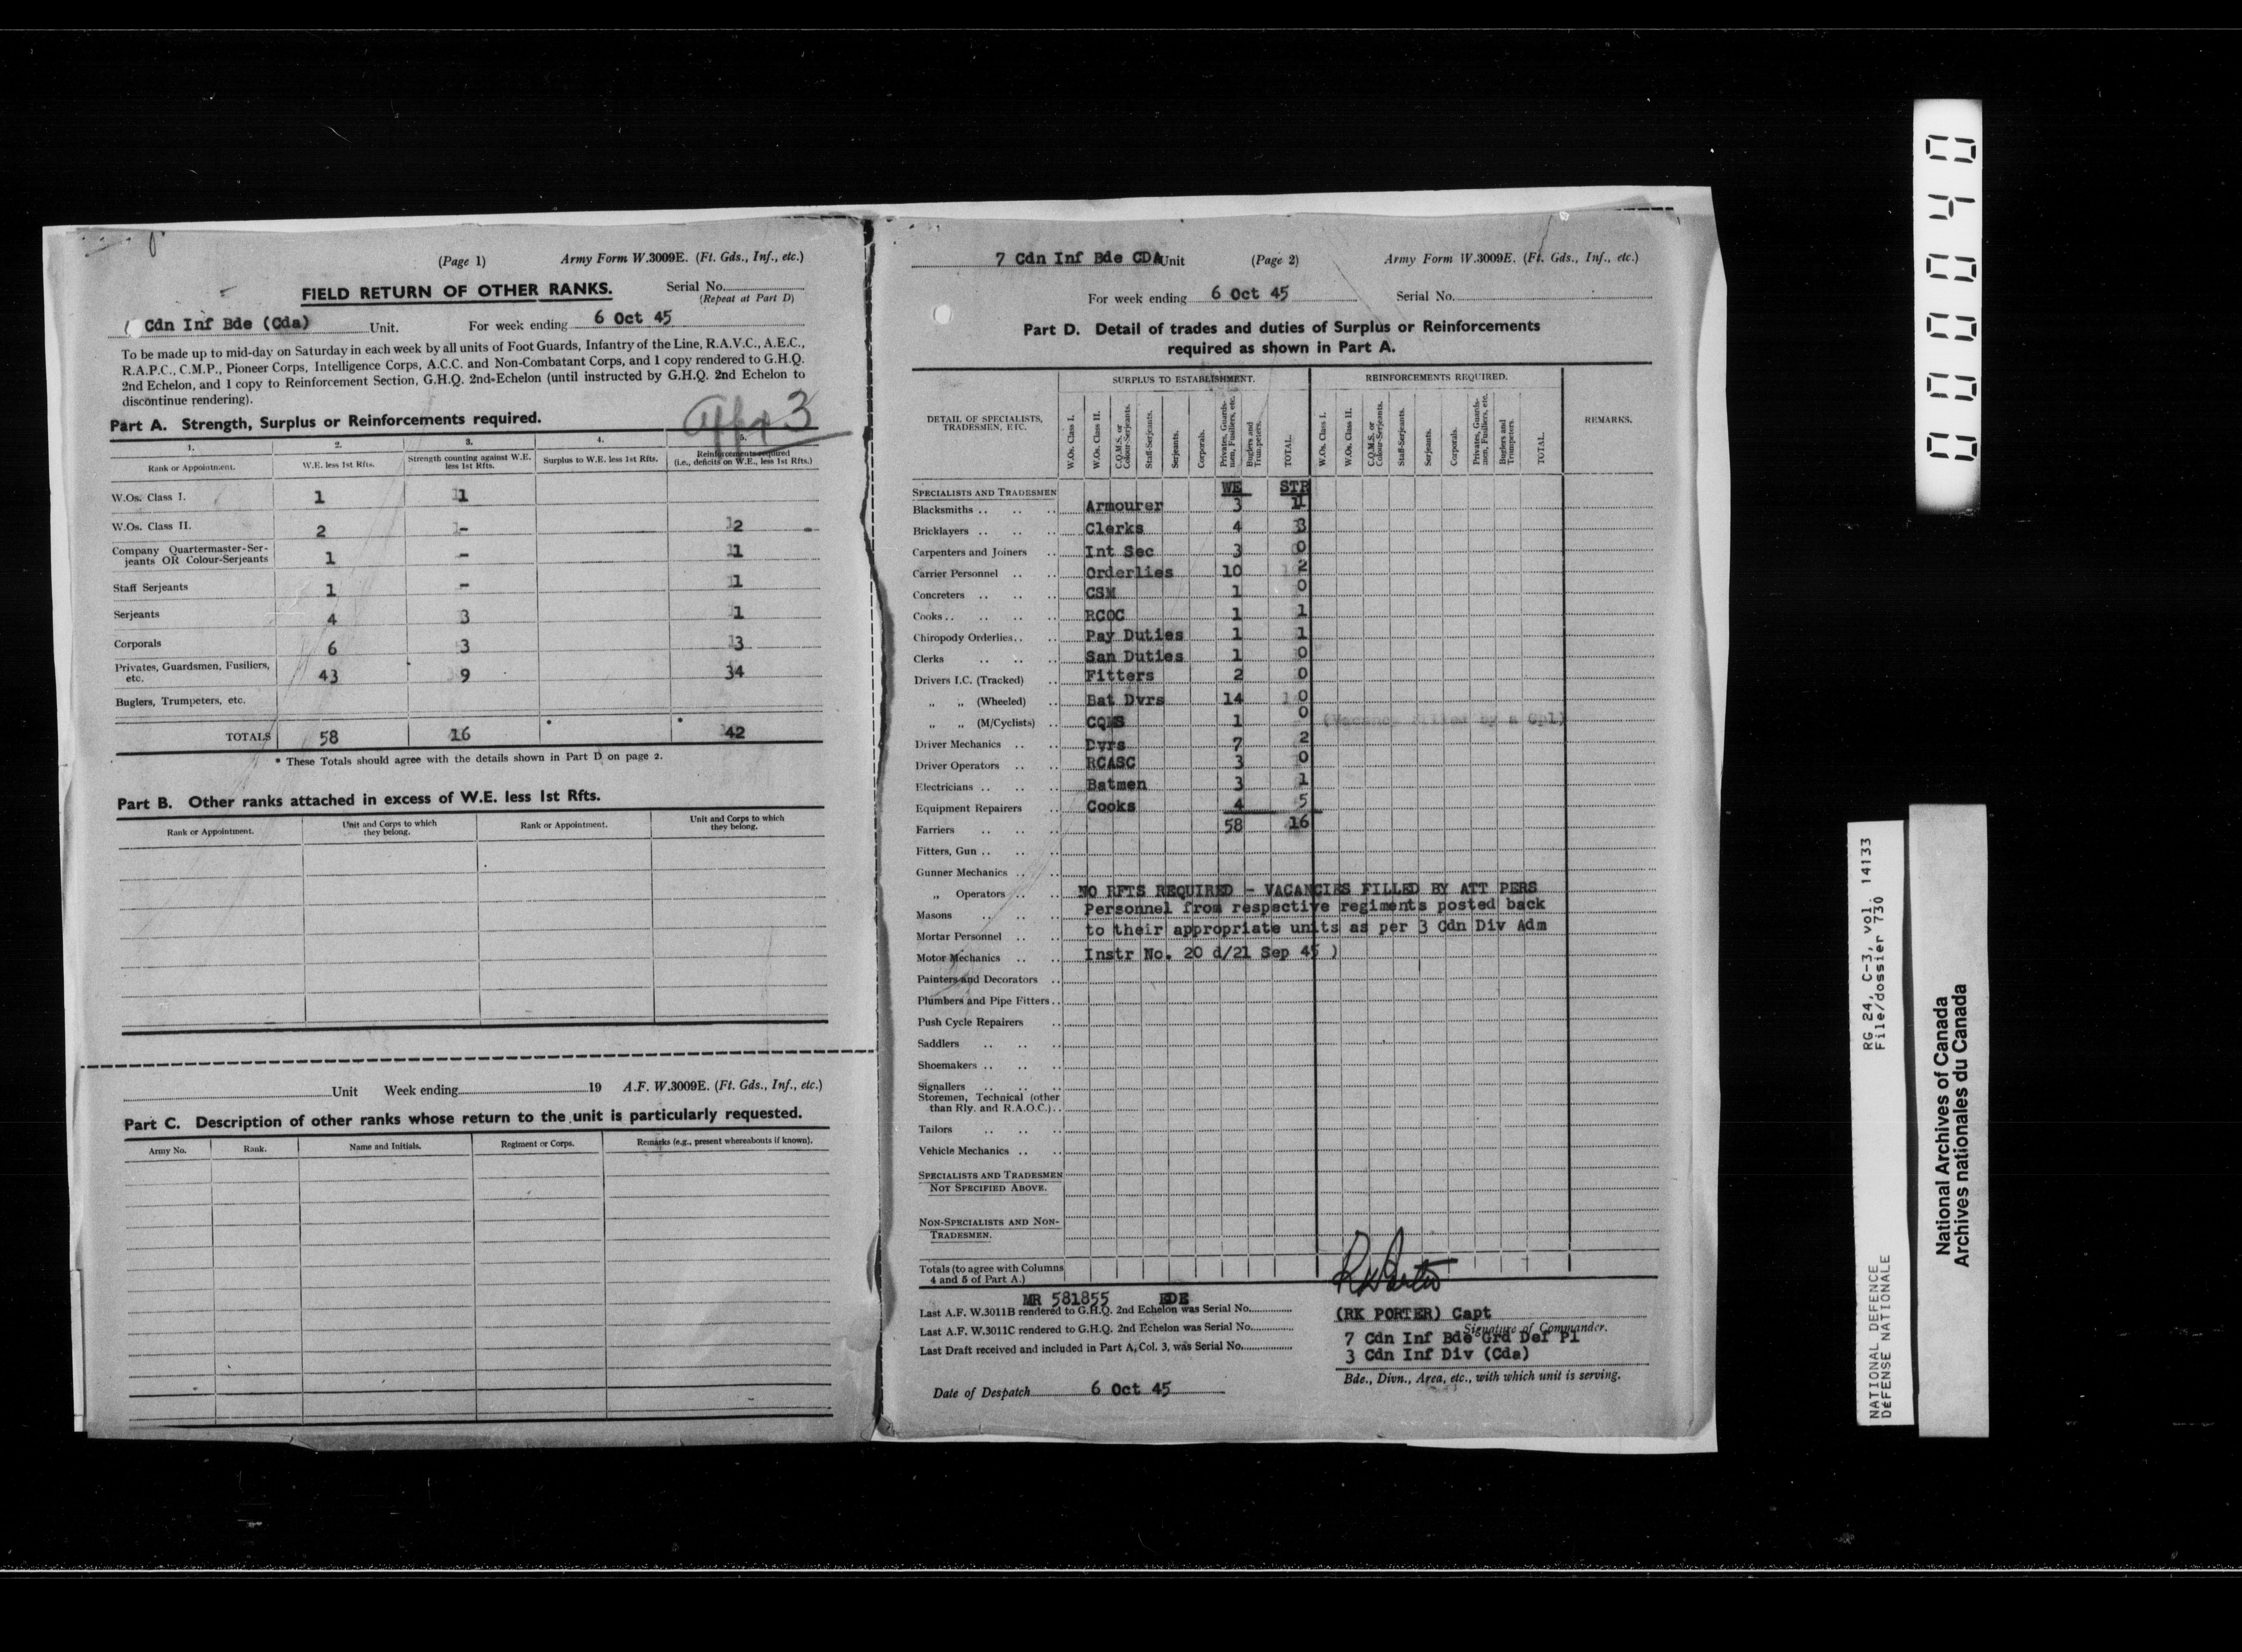 (Page 1) Army Form W.3009E. (Ft. Gds., Inf., etc.)
FIELD RETURN OF OTHER RANKS. Serial No.
(Repeat at Part D)
Cdn Inf Bde (Cda) Unit. For week ending 6 Oct 45
To be made up to mid-day on Saturday in each week by all units of Foot Guards, Infantry of the Line, R.A.V.C., A.E.C.,
R.A.P.C., C.M.P., Pioneer Corps, Intelligence Corps, A.C.C. and Non-Combatant Corps, and 1 copy rendered to G.H.Q.
2nd Echelon, and 1 copy to Reinforcement Section, G.H.Q. 2nd-Echelon (until instructed by G.H.Q. 2nd Echelon to
discontinue rendering).
Appx 3
Part A. Strength, Surplus or Reinforcements required.
1. 2. 3. 4. 5.
Rank or Appointment. W.E. less 1st Rfts. Strength counting against W.E. less 1st Rfts. Surplus to W.E. less 1st Rfts. Reinforcements required (i.e., deficits on W.E., less 1st Rfts.)
W.Os. Class I. 1 1
W.Os. Class II. 2 - 2
Company Quartermaster-Ser-
jeants OR Colour-Serjeants 1 - 1
Staff Serjeants 1 - 1
Serjeants 4 3 1
Corporals 6 3 3
Privates, Guardsmen, Fusiliers,
etc. 43 9 34
Buglers, Trumpeters, etc.
TOTALS 58 16 * * 42
* These Totals should agree with the details shown in Part D on page 2.
Part B. Other ranks attached in excess of W.E. less 1st Rfts.
Rank or Appointment. Unit and Corps to which they belong. Rank or Appointment. Unit and Corps to which they belong.
Unit Week ending 19 A.F. W.3009E. (Ft. Gds., Inf., etc.)
Part C. Description of other ranks whose return to the unit is particularly requested.
Army No. Rank. Name and Initials. Regiment or Corps. Remarks (e.g., present whereabouts if known).
7 Cdn Inf Bde CDA Unit (Page 2) Army Form W.3009E. (Ft. Gds., Inf., etc.)
For week ending 6 Oct 45 Serial No.
Part D. Detail of trades and duties of Surplus or Reinforcements
required as shown in Part A.
DETAIL OF SPECIALISTS, TRADESMEN, ETC. SURPLUS TO ESTABLISHMENT. REINFORCEMENTS REQUIRED. REMARKS.
W.Os. Class I. W.Os. Class II. C.Q.M.S. or Colour-Serjeants. Staff-Serjeants. Serjeants. Corporals. Privates, Guardsmen, Fusiliers, etc. Buglers and Trumpeters. TOTAL. W.Os. Class I. W.Os. Class II. C.Q.M.S. or Colour-Serjeants. Staff-Serjeants. Serjeants. Corporals. Privates, Guardsmen, Fusiliers, etc. Buglers and Trumpeters. TOTAL.
SPECIALISTS AND TRADESMEN WE STR
Blacksmiths .. Armourer 3 1
Bricklayers .. Clerks 4 3
Carpenters and Joiners .. Int Sec 3 0
Carrier Personnel .. Orderlies 10 2
Concreters .. CSM 1 0
Cooks .. RCOC 1 1
Chiropody Orderlies .. Pay Duties 1 1
Clerks .. San Duties 1 0
Drivers I.C. (Tracked) .. Fitters 2 0
„ „ (Wheeled) .. Bat Dvrs 14 0
„ „ (M/Cyclists) .. CQMS 1 0 (Vacancy filled by a Cpl)
Driver Mechanics .. Dvrs 7 2
Driver Operators .. RCASC 3 0
Electricians .. Batmen 3 1
Equipment Repairers .. Cooks 4 5
Farriers .. 58 16
Fitters, Gun ..
Gunner Mechanics ..
„ Operators .. NO RFTS REQUIRED - VACANCIES FILLED BY ATT PERS
Masons .. Personnel from respective regiments posted back
Mortar Personnel .. to their appropriate units as per 3 Cdn Div Adm
Motor Mechanics .. Instr No. 20 d/21 Sep 45 )
Painters and Decorators ..
Plumbers and Pipe Fitters ..
Push Cycle Repairers ..
Saddlers ..
Shoemakers ..
Signallers ..
Storemen, Technical (other
than Rly. and R.A.O.C.) ..
Tailors ..
Vehicle Mechanics ..
SPECIALISTS AND TRADESMEN
NOT SPECIFIED ABOVE.
NON-SPECIALISTS AND NON-
TRADESMEN.
Totals (to agree with Columns
4 and 5 of Part A.)
RK Porter
MR 581855 EDE
Last A.F. W.3011B rendered to G.H.Q. 2nd Echelon was Serial No.
Last A.F. W.3011C rendered to G.H.Q. 2nd Echelon was Serial No.
Last Draft received and included in Part A, Col. 3, was Serial No.
(RK PORTER) Capt
Signature of Commander.
7 Cdn Inf Bde Grd Def Pl
3 Cdn Inf Div (Cda)
Bde., Divn., Area, etc., with which unit is serving.
Date of Despatch 6 Oct 45
000040
NATIONAL DEFENCE RG 24, C-3, vol. 14133
DÉFENSE NATIONALE File/dossier 730
National Archives of Canada
Archives nationales du Canada